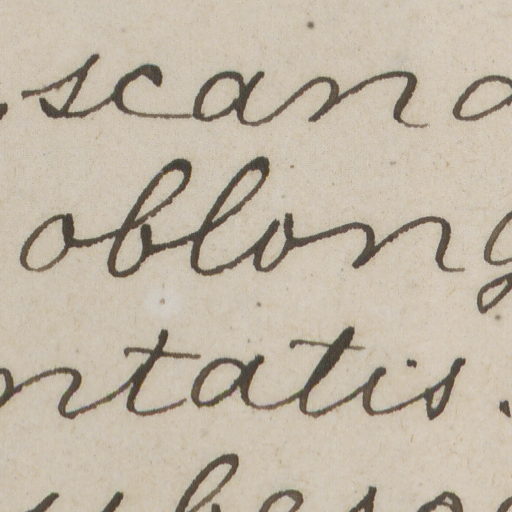 scana
oblong
ntatis.